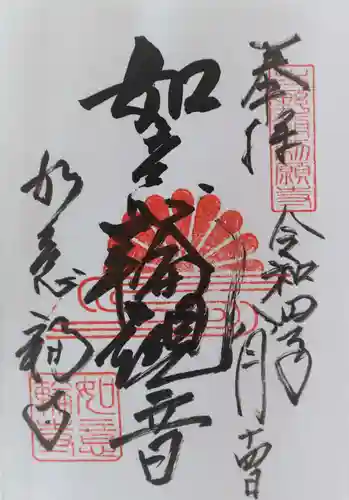 奉拝
令和四年八月十四日
如意輪観音
如意輪寺
如意
輪寺